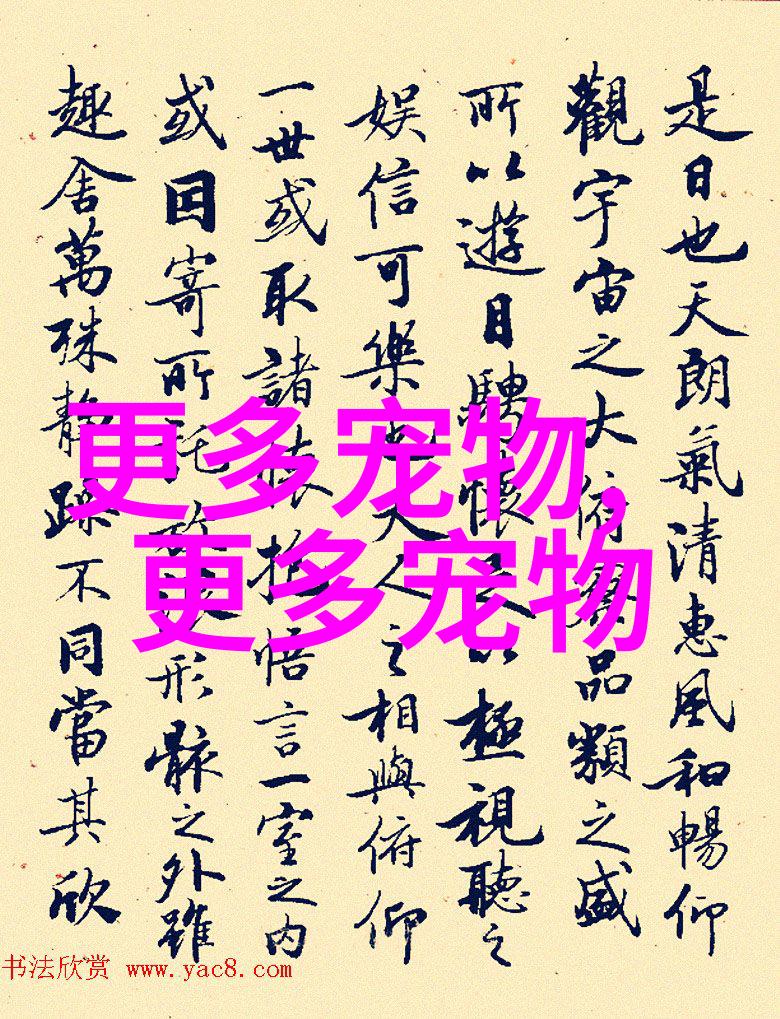 是日也天朗氣清惠風和暢仰
觀宇宙之大俯察品類之盛
所以遊目騁懷足以極視聽之
娱信可樂也夫人之相與俯仰
一世或取諸懷抱悟言一室之内
或因寄所托放浪形骸之外雖
趣舍萬殊静躁不同當其欣
更多宠物,
更多宠物
书法欣赏 www.yac8.com